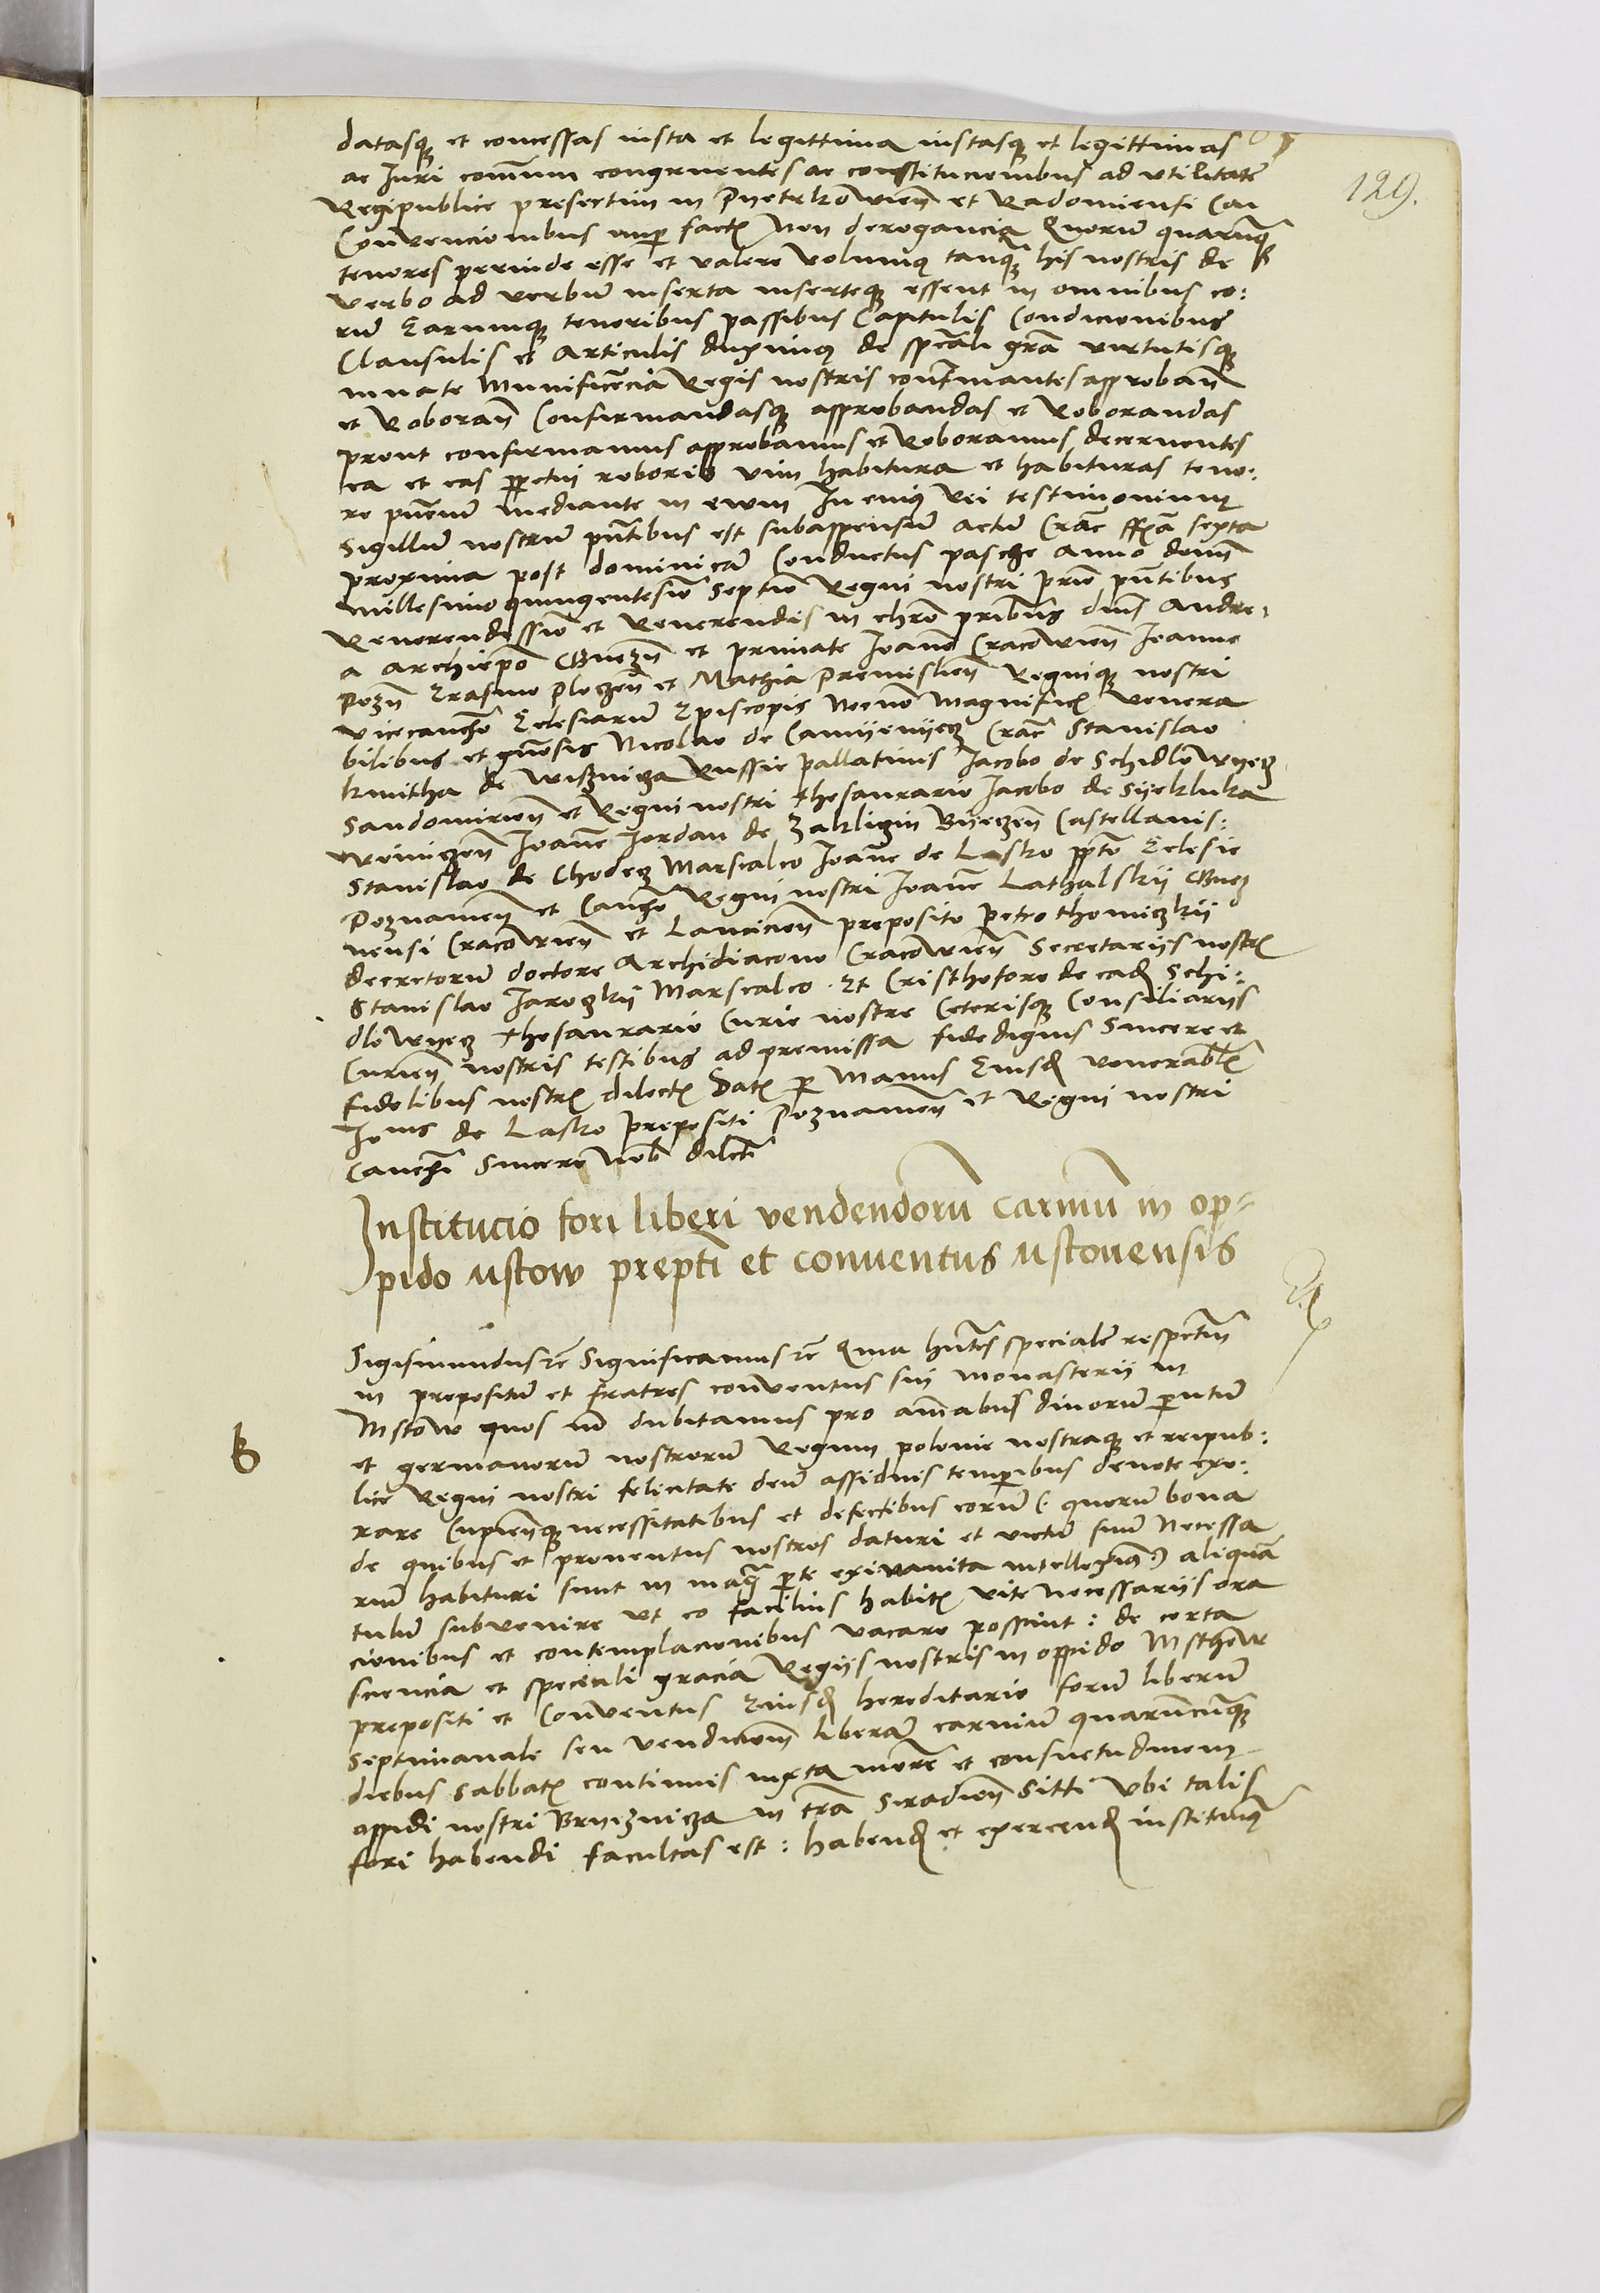 129.
datasq3 et concessas iusta et legittima iustasq3 et legittimas
ac Iuri comuni congruentes ac constitucionibus ad vtilitatē
Regipublice presertim in Pyetrkowien̄ et Radomiensi
Convencionibus nup factꝫ Non derogancia Quorū quarūq3
tenores perinde esse et valere volumꝰ tanq3 his nostris de
verbo ad verbum inserta inserteq3 essent in omnibus eo:
rū Earumq3 tenoribus passibus Capitulis Condicionibus
Clausulis et Articulis duximꝰ de spēali grā virtutisq3
innate Munificēcia Regis nostris confirmantes approban̄
et Roboran̄ Confirmandasq3 approbandas et Roborandas
prout confirmamus approbamus et Roboramus decernentes
ea et eas ppetui roboris vim habitura et habituras teno:
re pn̄tium mediante in ewm In cuiꝰ Rei testimonium
Sigillum nostrum pn̄tibus est subappensum actum Crac̄ ffīa sexta
proxima post dominicā Conductus pasche Anno domī
Millesimo quingentesīo Septīo Regni nostri prīo pn̄tibus
Reuerendissīo et Reuerendis in chrō pribus dnīs Andre:
a archiepō Gnezn̄ et primate Ioan̄e Cracowien̄ Ioanne
Pozn̄ Erasmo Ploczen̄ et Mathia Premislien̄ Regniq3 nostri
vicecanchō Eclesiarū Episcopis Necnō Magnificꝫ venera
bilibus et gn̄osis Nicolao de Camyenyecz Crac̄ Stanislao
kmitha de wisznicza Russie pallatinis Iacobo de Schidlowyecz
Sandomirien̄ et Regni nostri thesaurario Iacobo de Syekluka
woiniczen̄ Ioan̄e Iordan de Zakliczin Byeczen̄ Castellanis:
Stanislao de Chodecz Marscalco Ioan̄e de Lasko ppto Eclesie
Poznamen̄ et Canchō Regni nostri Ioan̄e Lathalskij Gnez
nensi Cracowien̄ et Lancicien̄ preposito Petro thomiczkij
decretorū doctore Archidiacono Cracowien̄ Secretarijs nostrꝫ
Stanislao Iaroczkij Marscalco. Et Cristhoforo de eadꝫ Schi:
dlowyecz thesaurario Curie nostre Ceterisq3 Consiliarijs
Curien̄ nostris testibus ad premissa fidedignis Sincere et
fidelibus nostrꝫ dilectꝫ Datꝫ p Manus Eiusdꝫ venerablꝫ
Ioīs de Lasko Prepositi Poznamen̄ et Regni nostri
Cancrꝫ Sincere Nob dilcti
Institucio fori liberi vendendorū Carniū in op-
pido Mstow prepti et conuentus Mstouensis
Sigismundus rē Significamus rē Quia hn̄tes specialē respectum
in prepositū et fratres conventus sui Monasterij in
Mstow quos nō dubitamus pro aīabus diuorū pntum
et germanorū nostrorū Regum polonie nostraq3 et reipub:
lice Regni nostri felicitate deū assiduis temporibus deuote exo:
rare Cupien̄q3 necessitatibus et defectibus eorū (: quorū bona
de quibus et prouentus nostros daturi et victū suū Necessa
riū habituri sunt in magꝫ pte exinanita intelleximꝰ :) aliquan
tulū subvenire vt eo facilius habitꝫ vite necessarijs ora
cionibus et contemplacionibus vacare possint: de certa
sciencia et speciali gracia Regijs nostris in oppido Msthow
prepositi et Conventus Eiusdꝫ hereditario forū liberū
Septimanale seu Vendicionē liberā carnium quarūcunq3
diebus Sabbatꝫ continuis iuxta morē et consuetudinem
oppidi nostri Brzeznicza in trā Siradien̄ Sitti Vbi talis
fori habendi facultas est: habendꝫ et exercendꝫ instituimꝰ